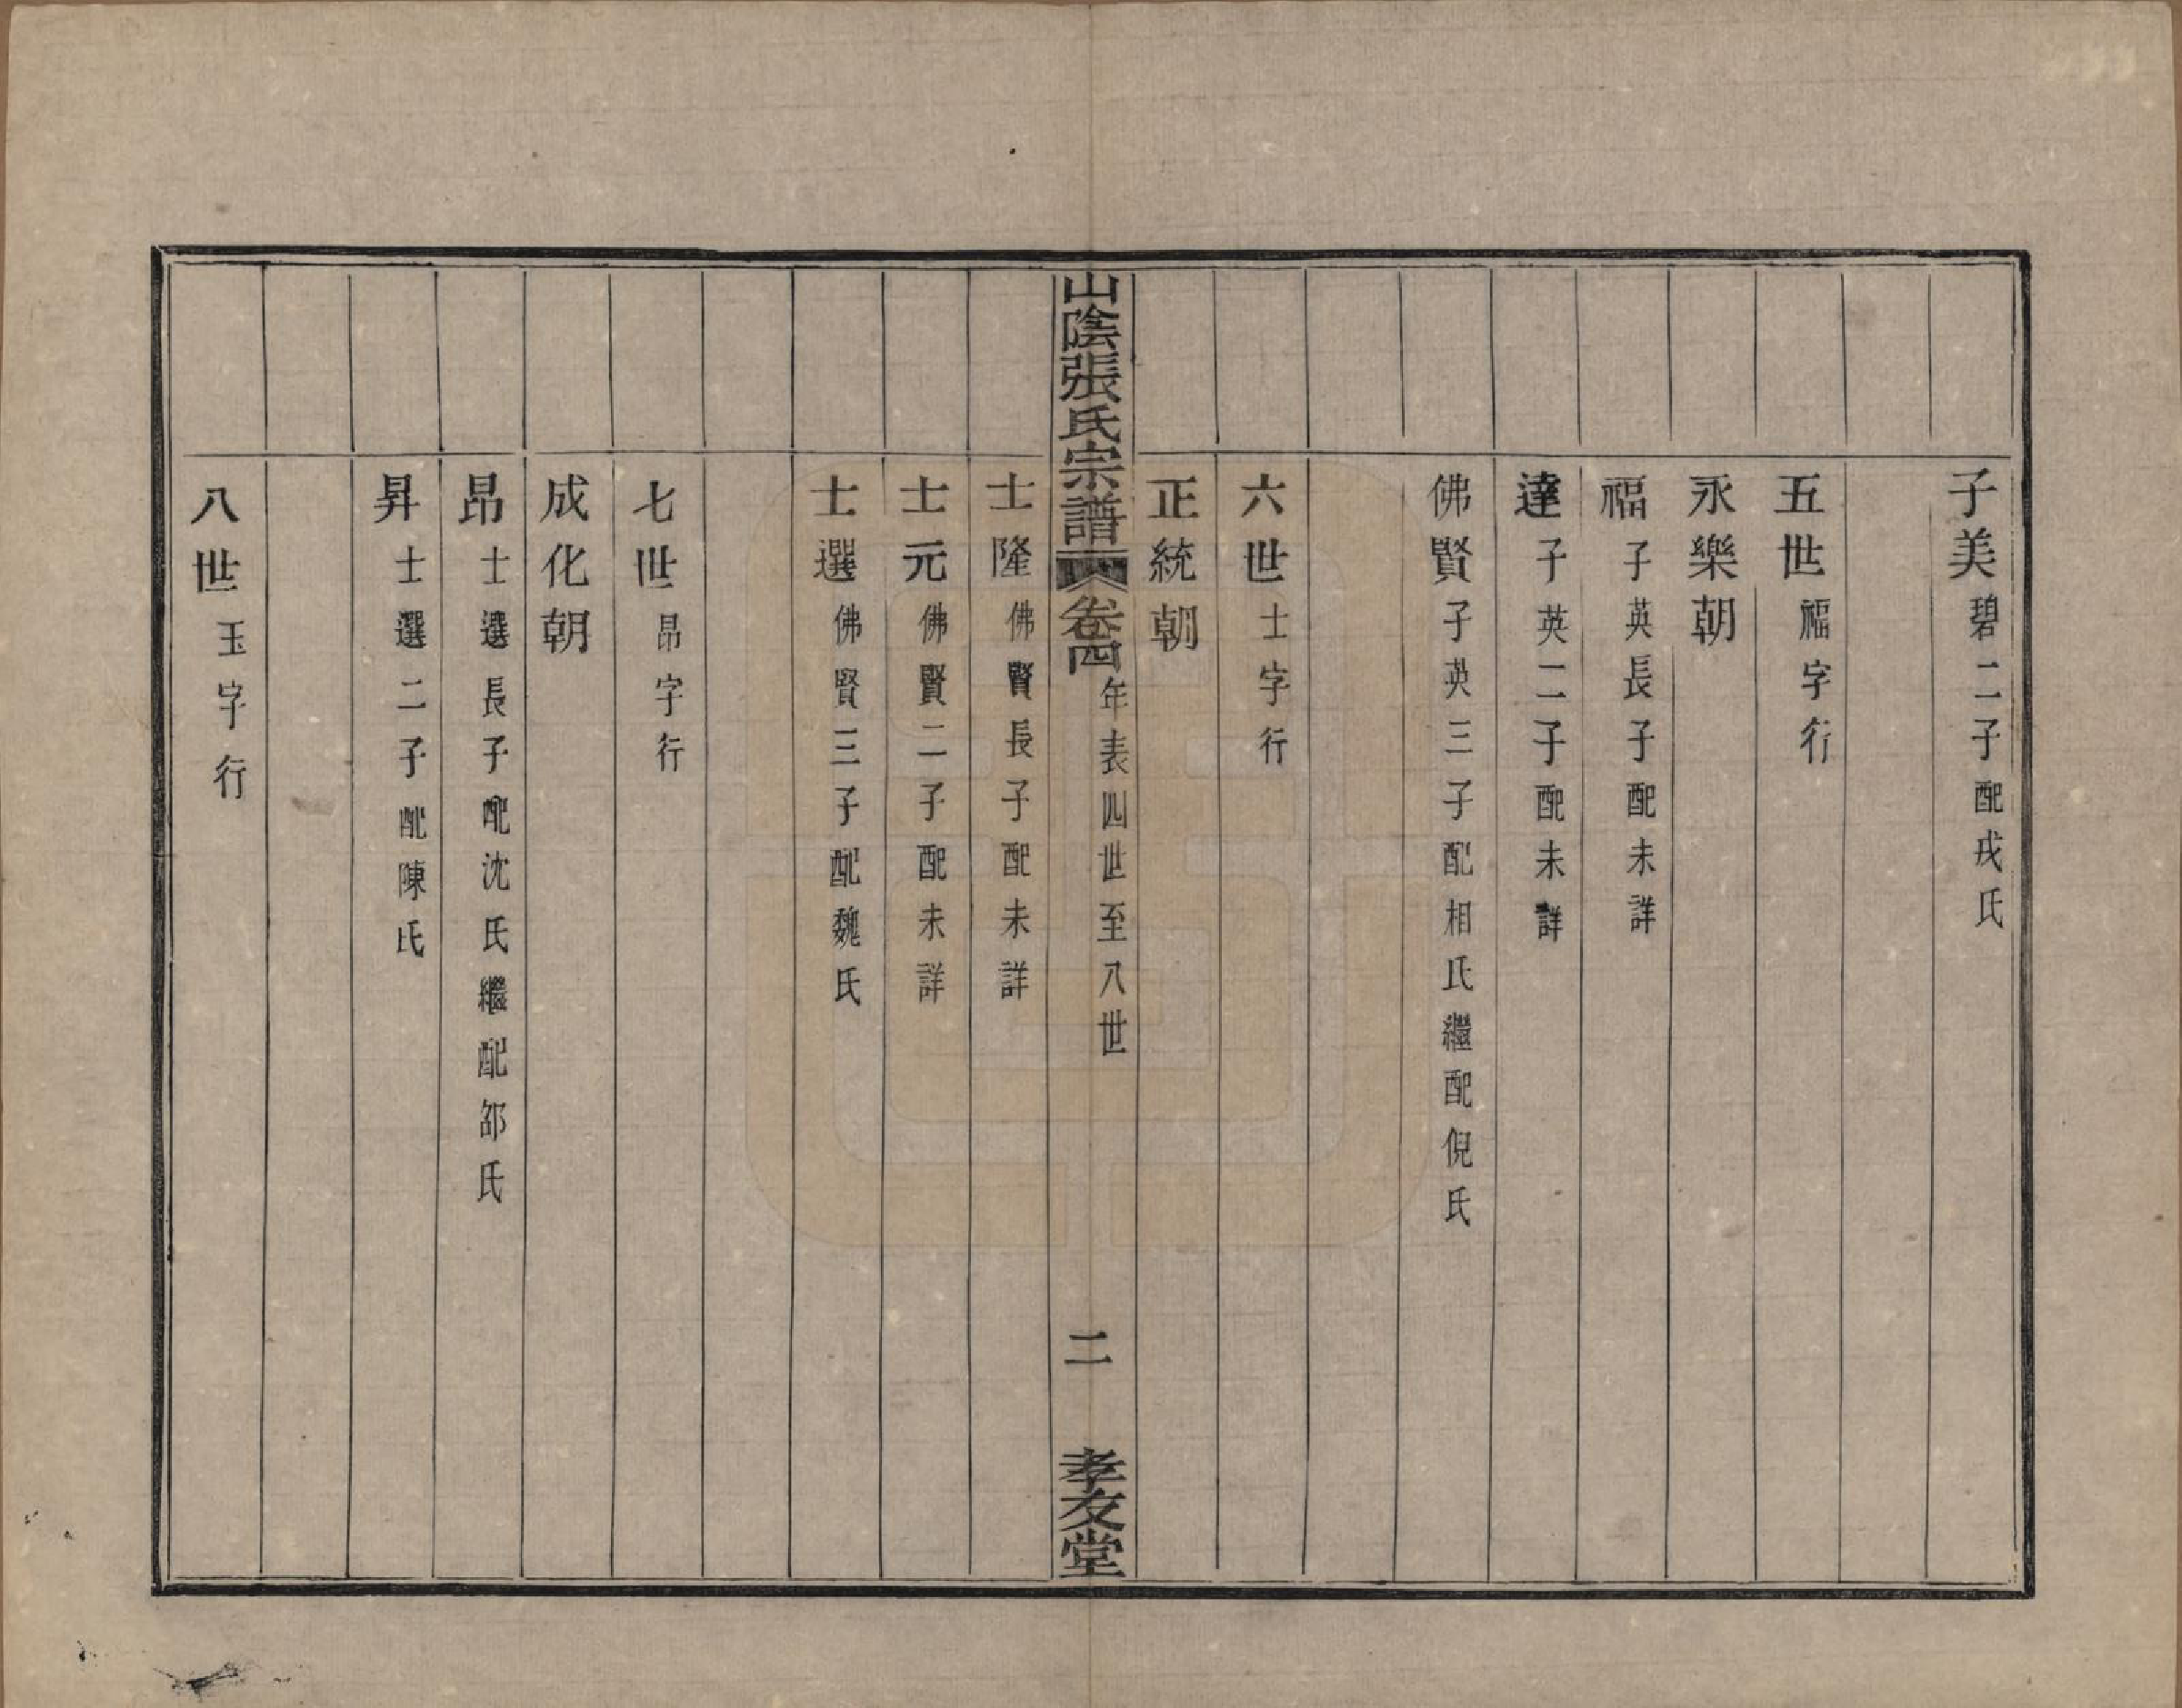 子美碧二子配戎氏
五世福字行
永樂朝
福子英長子配未詳
達子英二子配未詳
佛賢子英三子配相氏繼配倪氏
六世士字行
正統朝
山陰張氏宗譜 卷四 年表四世至八世 二 孝友堂
士隆佛賢長子配未詳
士元佛賢二子配未詳
士選佛賢三子配魏氏
七世昂字行
成化朝
昂士選長子配沈氏繼配邵氏
昇士選二子配陳氏
八世玉字行